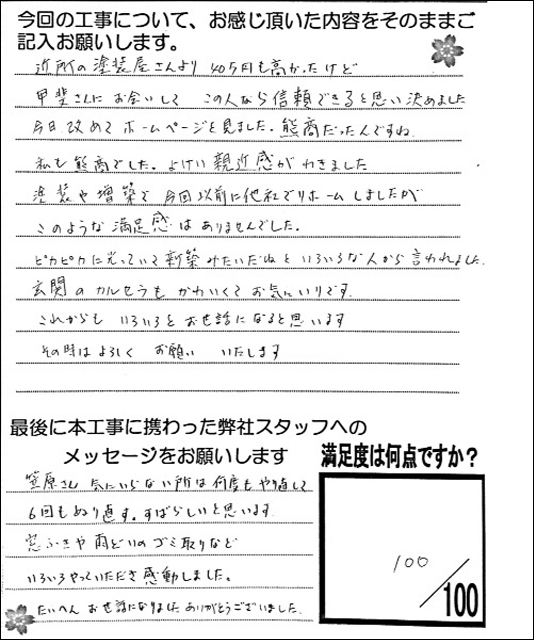 今回の工事について、お感じ頂いた内容をそのままご
記入お願いします。
近所の塗装屋さんより 40万円も高かったけど
甲斐さんに お会いして この人なら信頼できると思い決めました
今日 改めて ホームページを見ました。熊商だったんですね
私も 熊商でした。よけい 親近感が わきました
塗装や増築で 今回以前に他社でリホームしましたが
このような満足感は ありませんでした。
ピカピカに光っていて新築みたいだねと いろいろな人から言われました。
玄関の カルセラも かわいくて お気にいりです
これからも いろいろと お世話になると思います
その時は よろしく お願い いたします
最後に本工事に携わった弊社スタッフへの
メッセージをお願いします
満足度は何点ですか？
笠原さん 気にいらない所は何度も やり直して
6回もぬり直す。すばらしいと思います
窓ふきや 雨どいの ゴミ取りなど
いろいろやっていただき感動しました。
たいへん お世話になりました ありがとうございました。
100
/100